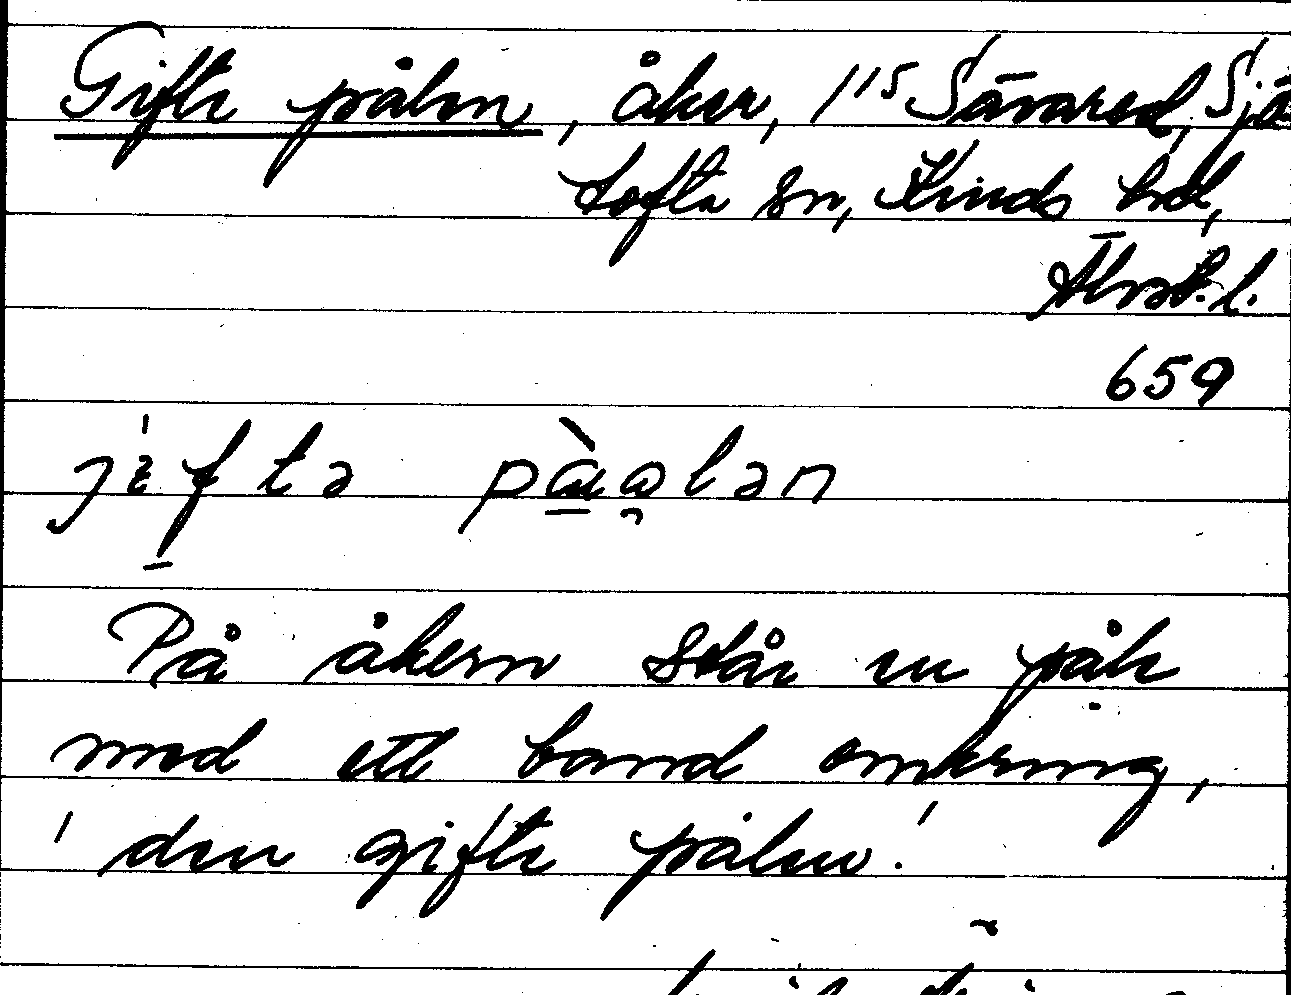 Gifte pålen, åker, 1/15 Sävared, Sjö
tofta sn, Kinds hd,
Älvsb. l.
659
jifta pàu̯lən
På åkern står en påle
med ett band omkring,
'den gifte pålen'.